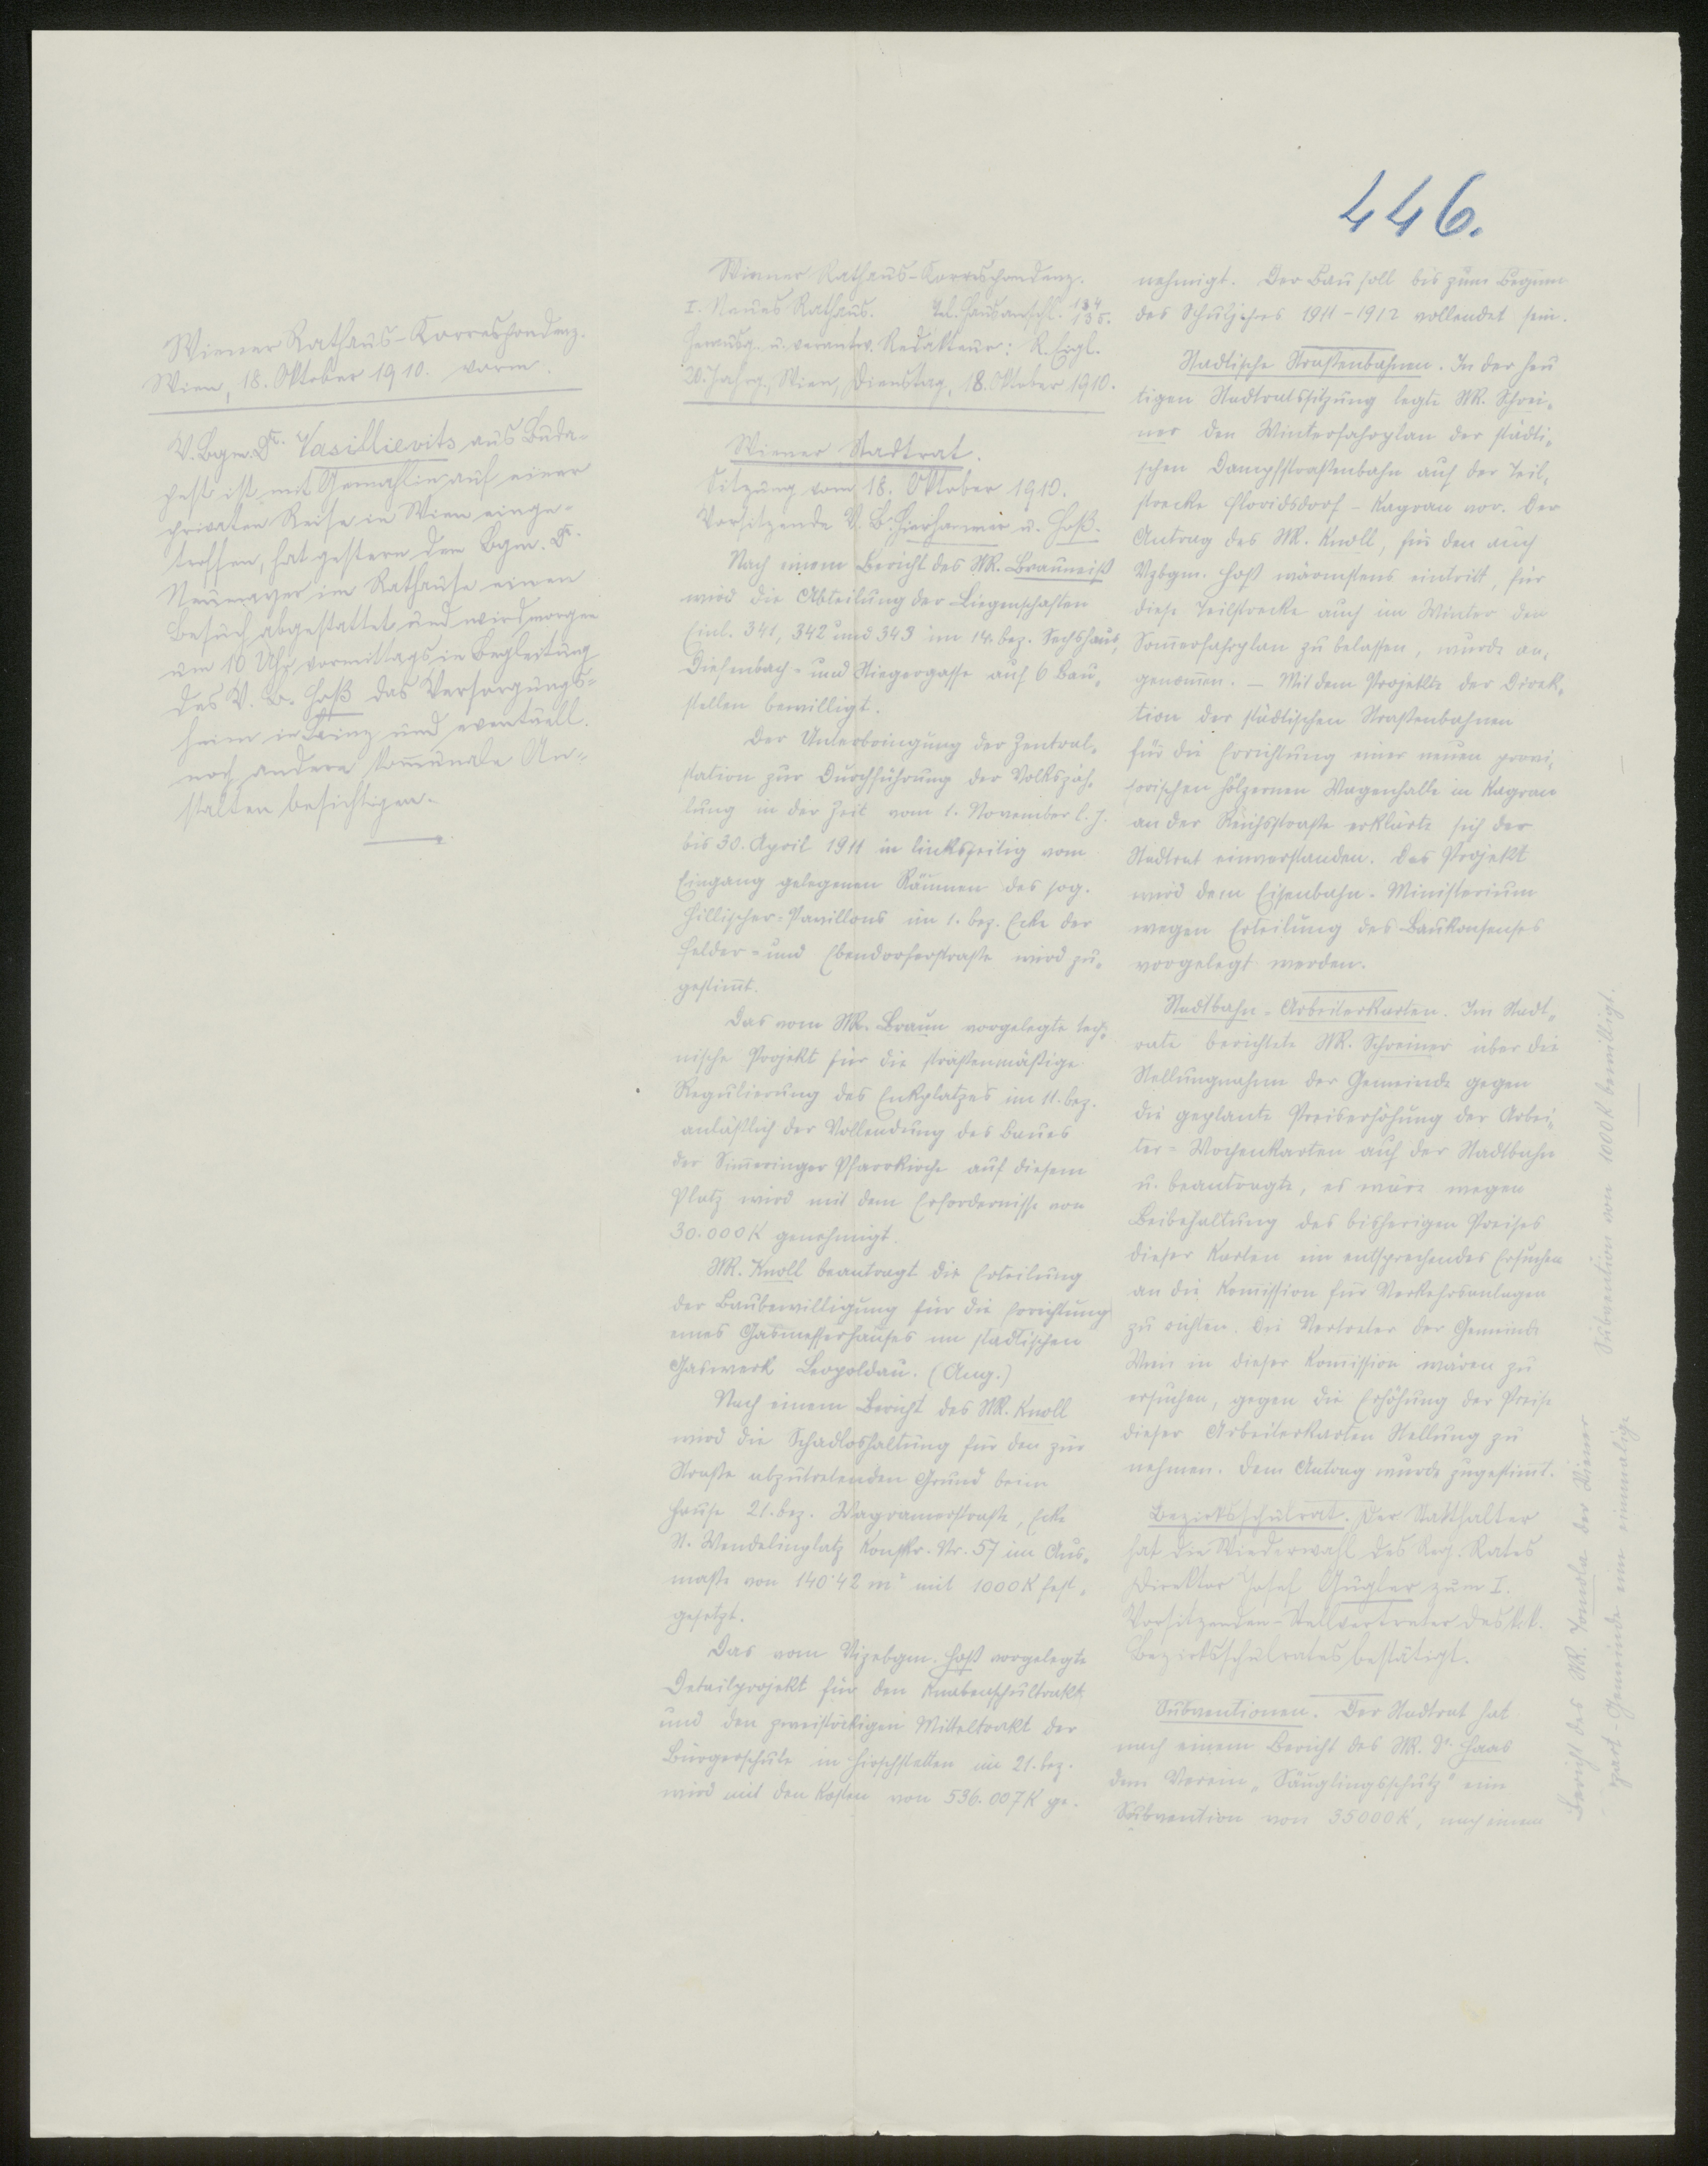 446.
Wiener Rathaus-Korrespondenz.
Wien, 18. Oktober 1910. vorm.
V. Bgm. Dr. Vasillievits aus Buda-
pest ist mit Gemahlin auf einer
privaten Reise in Wien einge-
troffen, hat gestern dem Bgm. Dr.
Neumayer im Rathause einen
Besuch abgestattet und wird morgen
um 10 Uhr vormittags in Begleitung
des V. B. Hoß das Versorgungs-
heim in Lainz und eventuell
noch andere kommunale An-
stalten besichtigen.
Wiener Rathaus-Korrespondenz.
I. Neues Rathaus. Tel. Hausanschl. 134
135.
Herausg. u. verantw. Redakteur: R. Eigl.
20. Jahrg. Wien, Dienstag, 18. Oktober 1910.
Wiener Stadtrat.
Sitzung vom 18. Oktober 1910.
Vorsitzende V. B. Hierhammer u. Hoß.
Nach einem Bericht des StR. Brauneiß
wird die Abteilung der Liegenschaften
Einl. 341, 342 und 343 im 14. Bez. Sechshaus,
Diefenbach- und Stiegergasse auf 6 Bau-
stellen bewilligt.
Der Unterbringung der Zentral-
station zur Durchführung der Volkszäh-
lung in der Zeit vom 1. November l. J.
bis 30. April 1911 in linksseitig vom
Eingang gelegenen Räumen des sog.
Hillischer-Pavillons im 1. Bez. Ecke der
Felder- und Ebendorferstraße wird zu-
gestim̄t.
Das vom StR. Braun vorgelegte tech-
nische Projekt für die straßenmäßige
Regulierung des Enkplatzes im 11. Bez.
anläßlich der Vollendung des Baues
der Sim̄eringer Pfarrkirche auf diesem
Platz wird mit dem Erfordernisse von
30.000 K genehmigt.
StR. Knoll beantragt die Erteilung
der Baubewilligung für die Errichtung
eines Gasmesserhauses im städtischen
Gaswerk Leopoldau. (Ang.)
Nach einem Bericht des StR. Knoll
wird die Schadloshaltung für den zur
Straße abzutretenden Grund beim
Hause 21. Bez. Wagramerstraße, Ecke
St. Wendelinplatz Konskr. Nr. 57 im Aus-
maße von 140·42 m² mit 1000 K fest-
gesetzt.
Das vom Vizebgm. Hoß vorgelegte
Detailprojekt für den Knabenschultrakt
und den zweistöckigen Mitteltrakt der
Bürgerschule in Hirschstetten im 21. Bez.
wird mit den Kosten von 536.007 K ge-
nehmigt. Der Bau soll bis zum Beginn
des Schuljahres 1911-1912 vollendet sein.
Städtische Straßenbahnen. In der heu
tigen Stadtratssitzung legte StR. Schrei-
ner den Winterfahrplan der städti-
schen Dampfstraßenbahn auf der Teil-
strecke Floridsdorf - Kagran vor. Der
Antrag des StR. Knoll, für den auch
Vzbgm. Hoß wärmstens eintritt, für
diese Teilstrecke auch im Winter den
Som̄erfahrplan zu belassen, wurde an-
genom̄en. — Mit dem Projekte der Direk-
tion der städtischen Straßenbahnen
für die Errichtung einer neuen provi-
sorischen hölzernen Wagenhalle in Kagran
an der Reichsstraße erklärte sich der
Stadtrat einverstanden. Das Projekt
wird dem Eisenbahn-Ministerium
wegen Erteilung des Baukonsenses
vorgelegt werden.
Stadtbahn-Arbeiterkarten. Im Stadt-
rate berichtete StR. Schreiner über die
Stellungnahme der Gemeinde gegen
die geplante Preiserhöhung der Arbei-
ter-Wochenkarten auf der Stadtbahn
u. beantragte, es wäre wegen
Beibehaltung des bisherigen Preises
dieser Karten ein entsprechendes Ersuchen
an die Kom̄ission für Verkehrsanlagen
zu richten. Die Vertreter der Gemeinde
Wien in dieser Kom̄ission wären zu
ersuchen, gegen die Erhöhung der Preise
dieser Arbeiterkarten Stellung zu
nehmen. Dem Antrag wurde zugestim̄t.
Bezirksschulrat. Der Statthalter
hat die Wiederwahl des Reg. Rates
Direktor Josef Gugler zum I.
Vorsitzenden-Stellvertreter des k.k.
Bezirksschulrates bestätigt.
Subventionen. Der Stadtrat hat
nach einem Bericht des StR. Dr. Haas
dem Verein „Säuglingsschutz" eine
Subvention von 35000 K, nach einem
Bericht des StR. Tomola der Wiener
Mozart-Gemeinde eine einmalige
Subvention von 1000 K bewilligt.